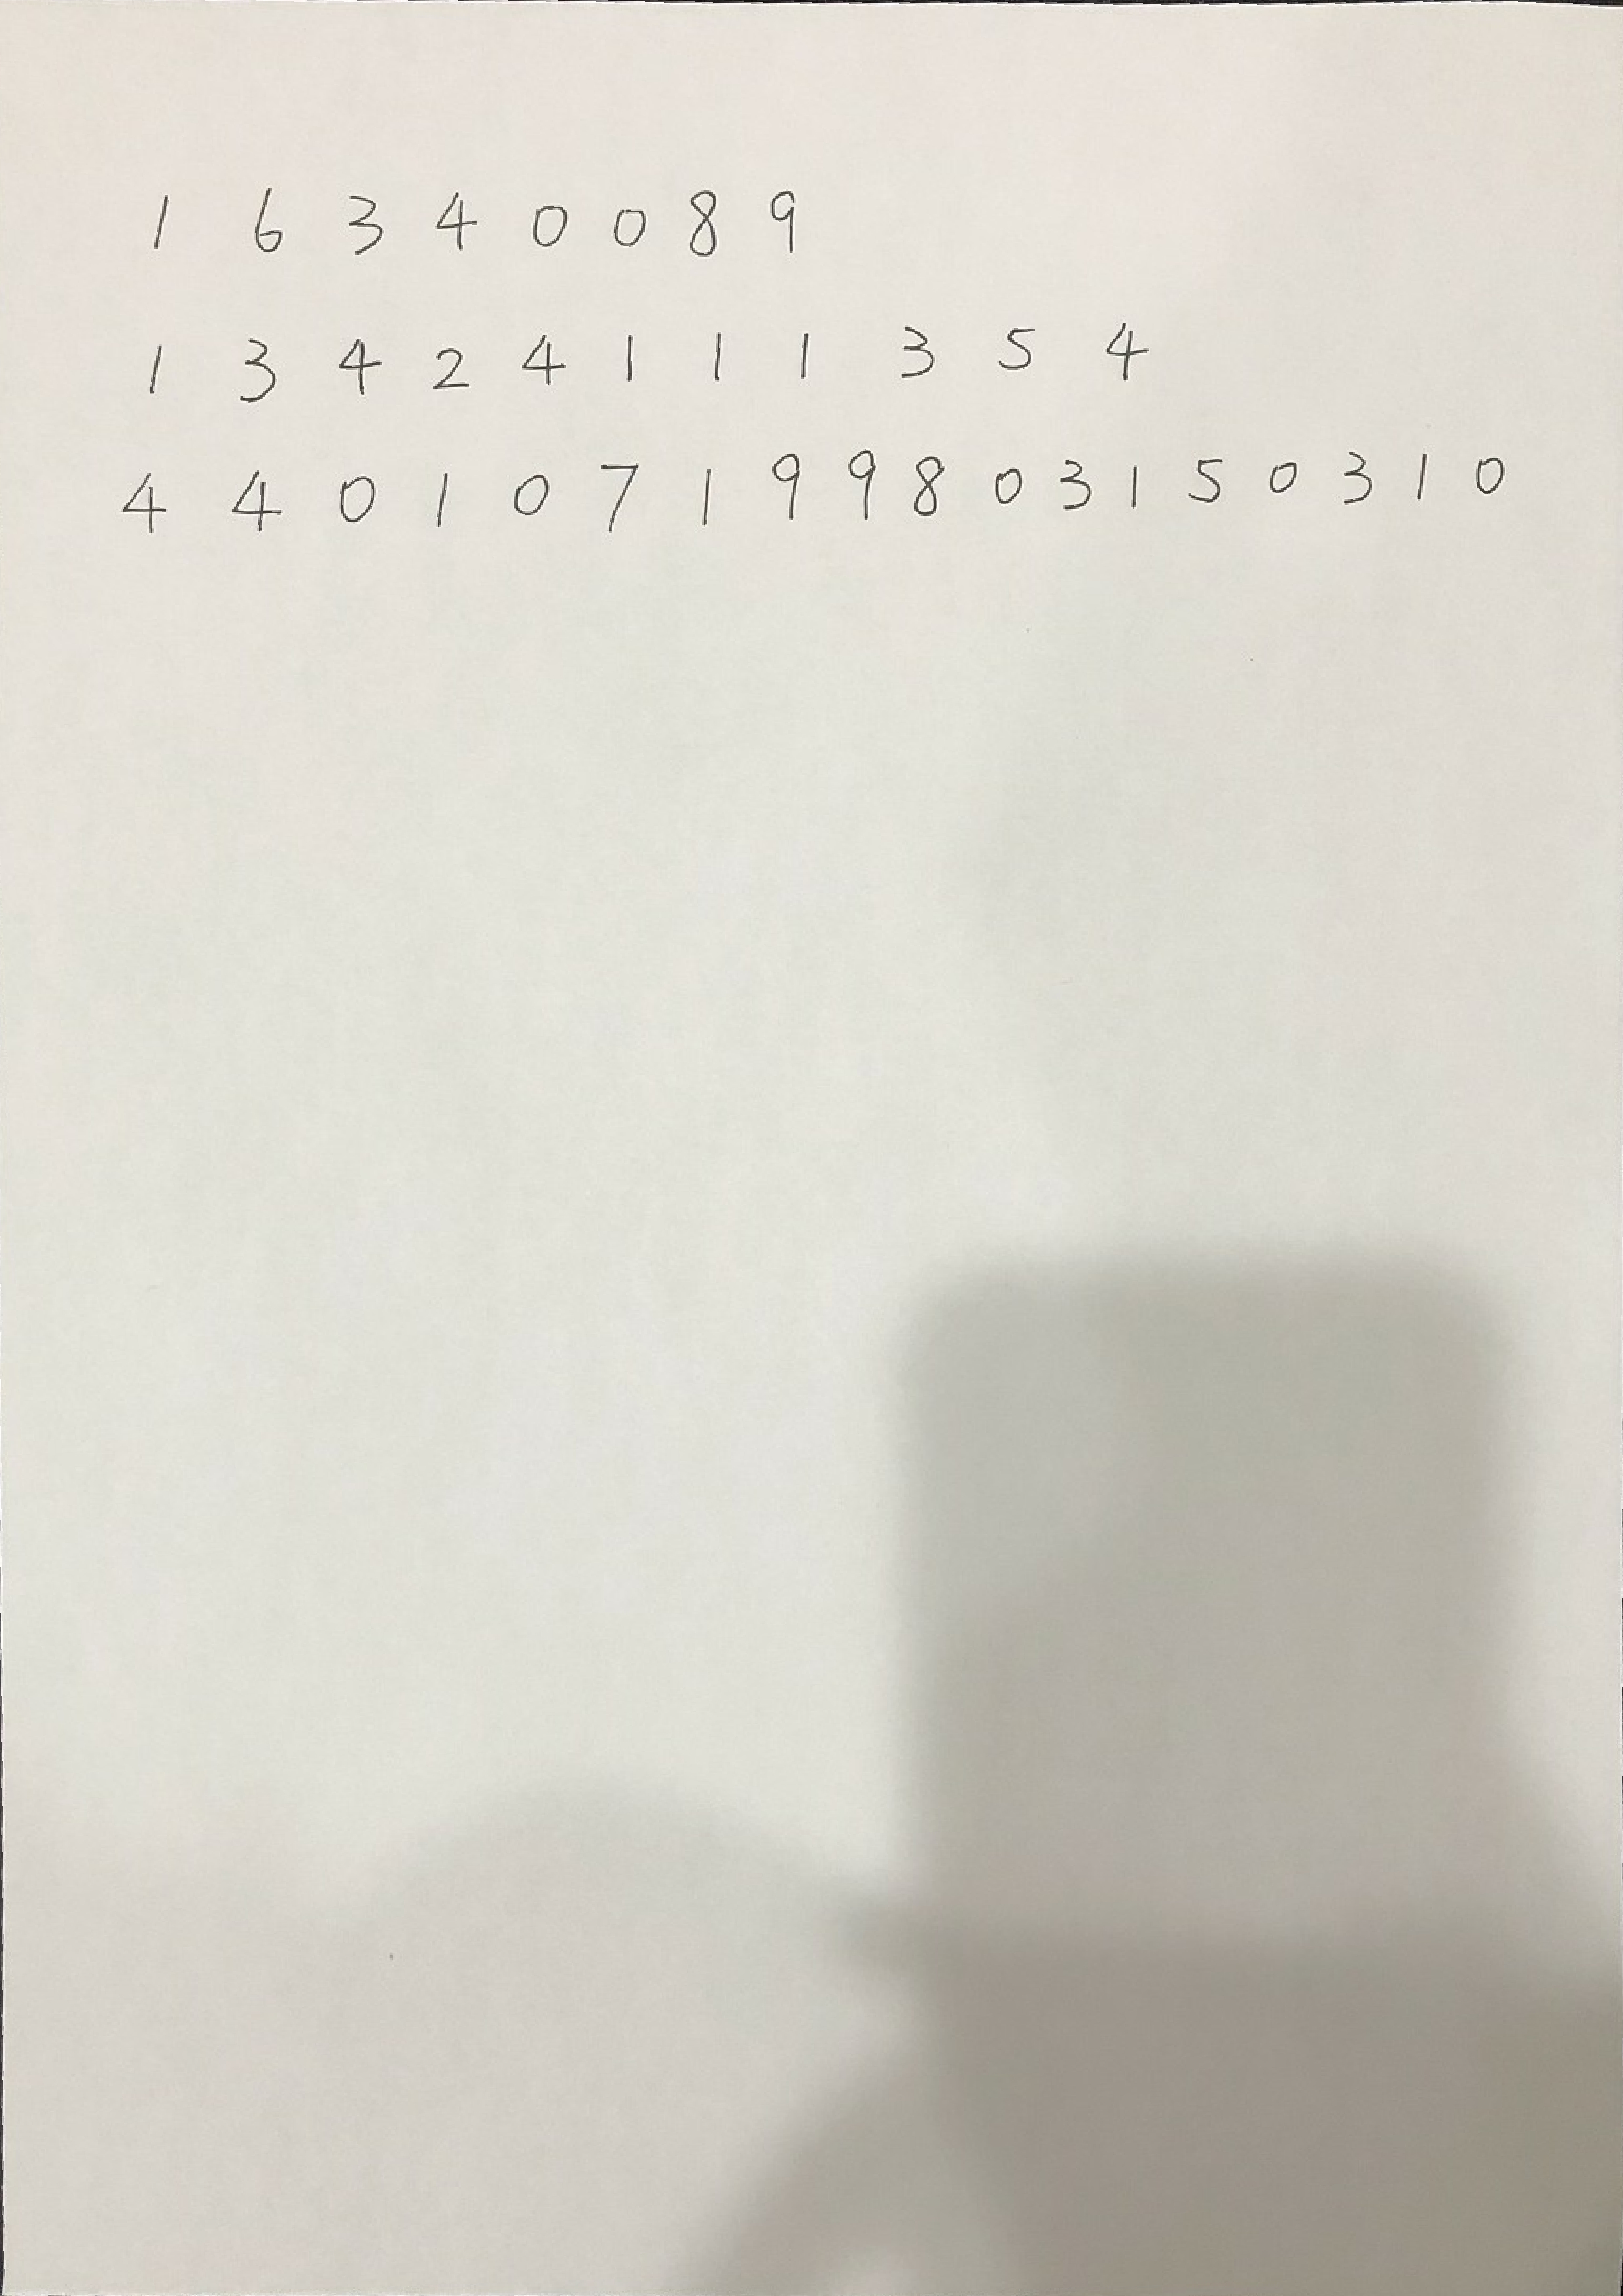 1 6 3 4 0 0 8 9
1 3 4 2 4 1 1 1 3 5 4
4 4 0 1 0 7 1 9 9 8 0 3 1 5 0 3 1 0